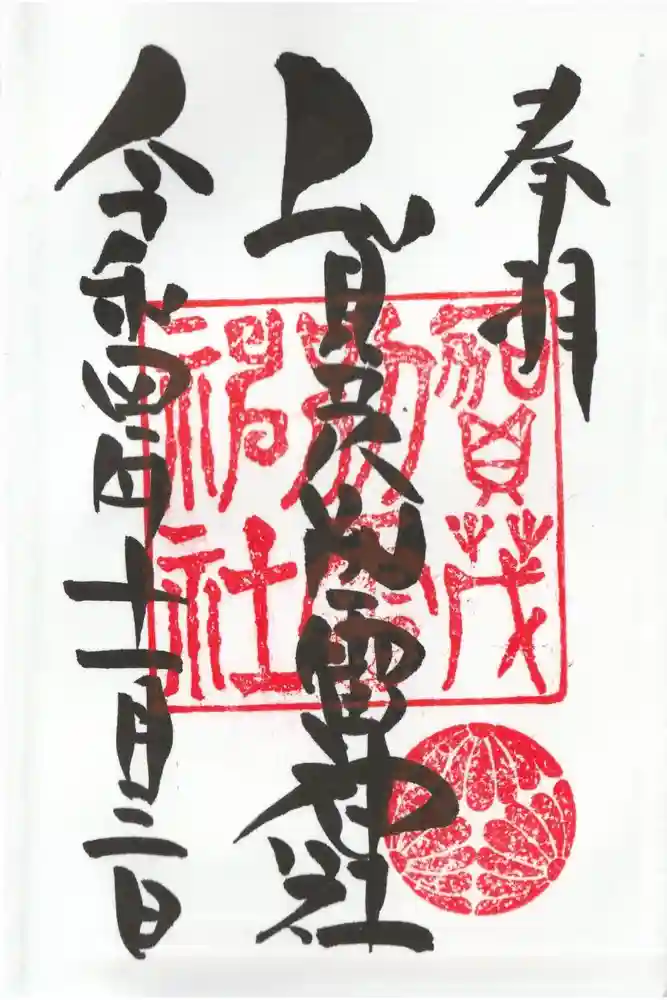 奉拝
賀茂別雷神社
令和四年十一月二日
賀茂
別雷
神社